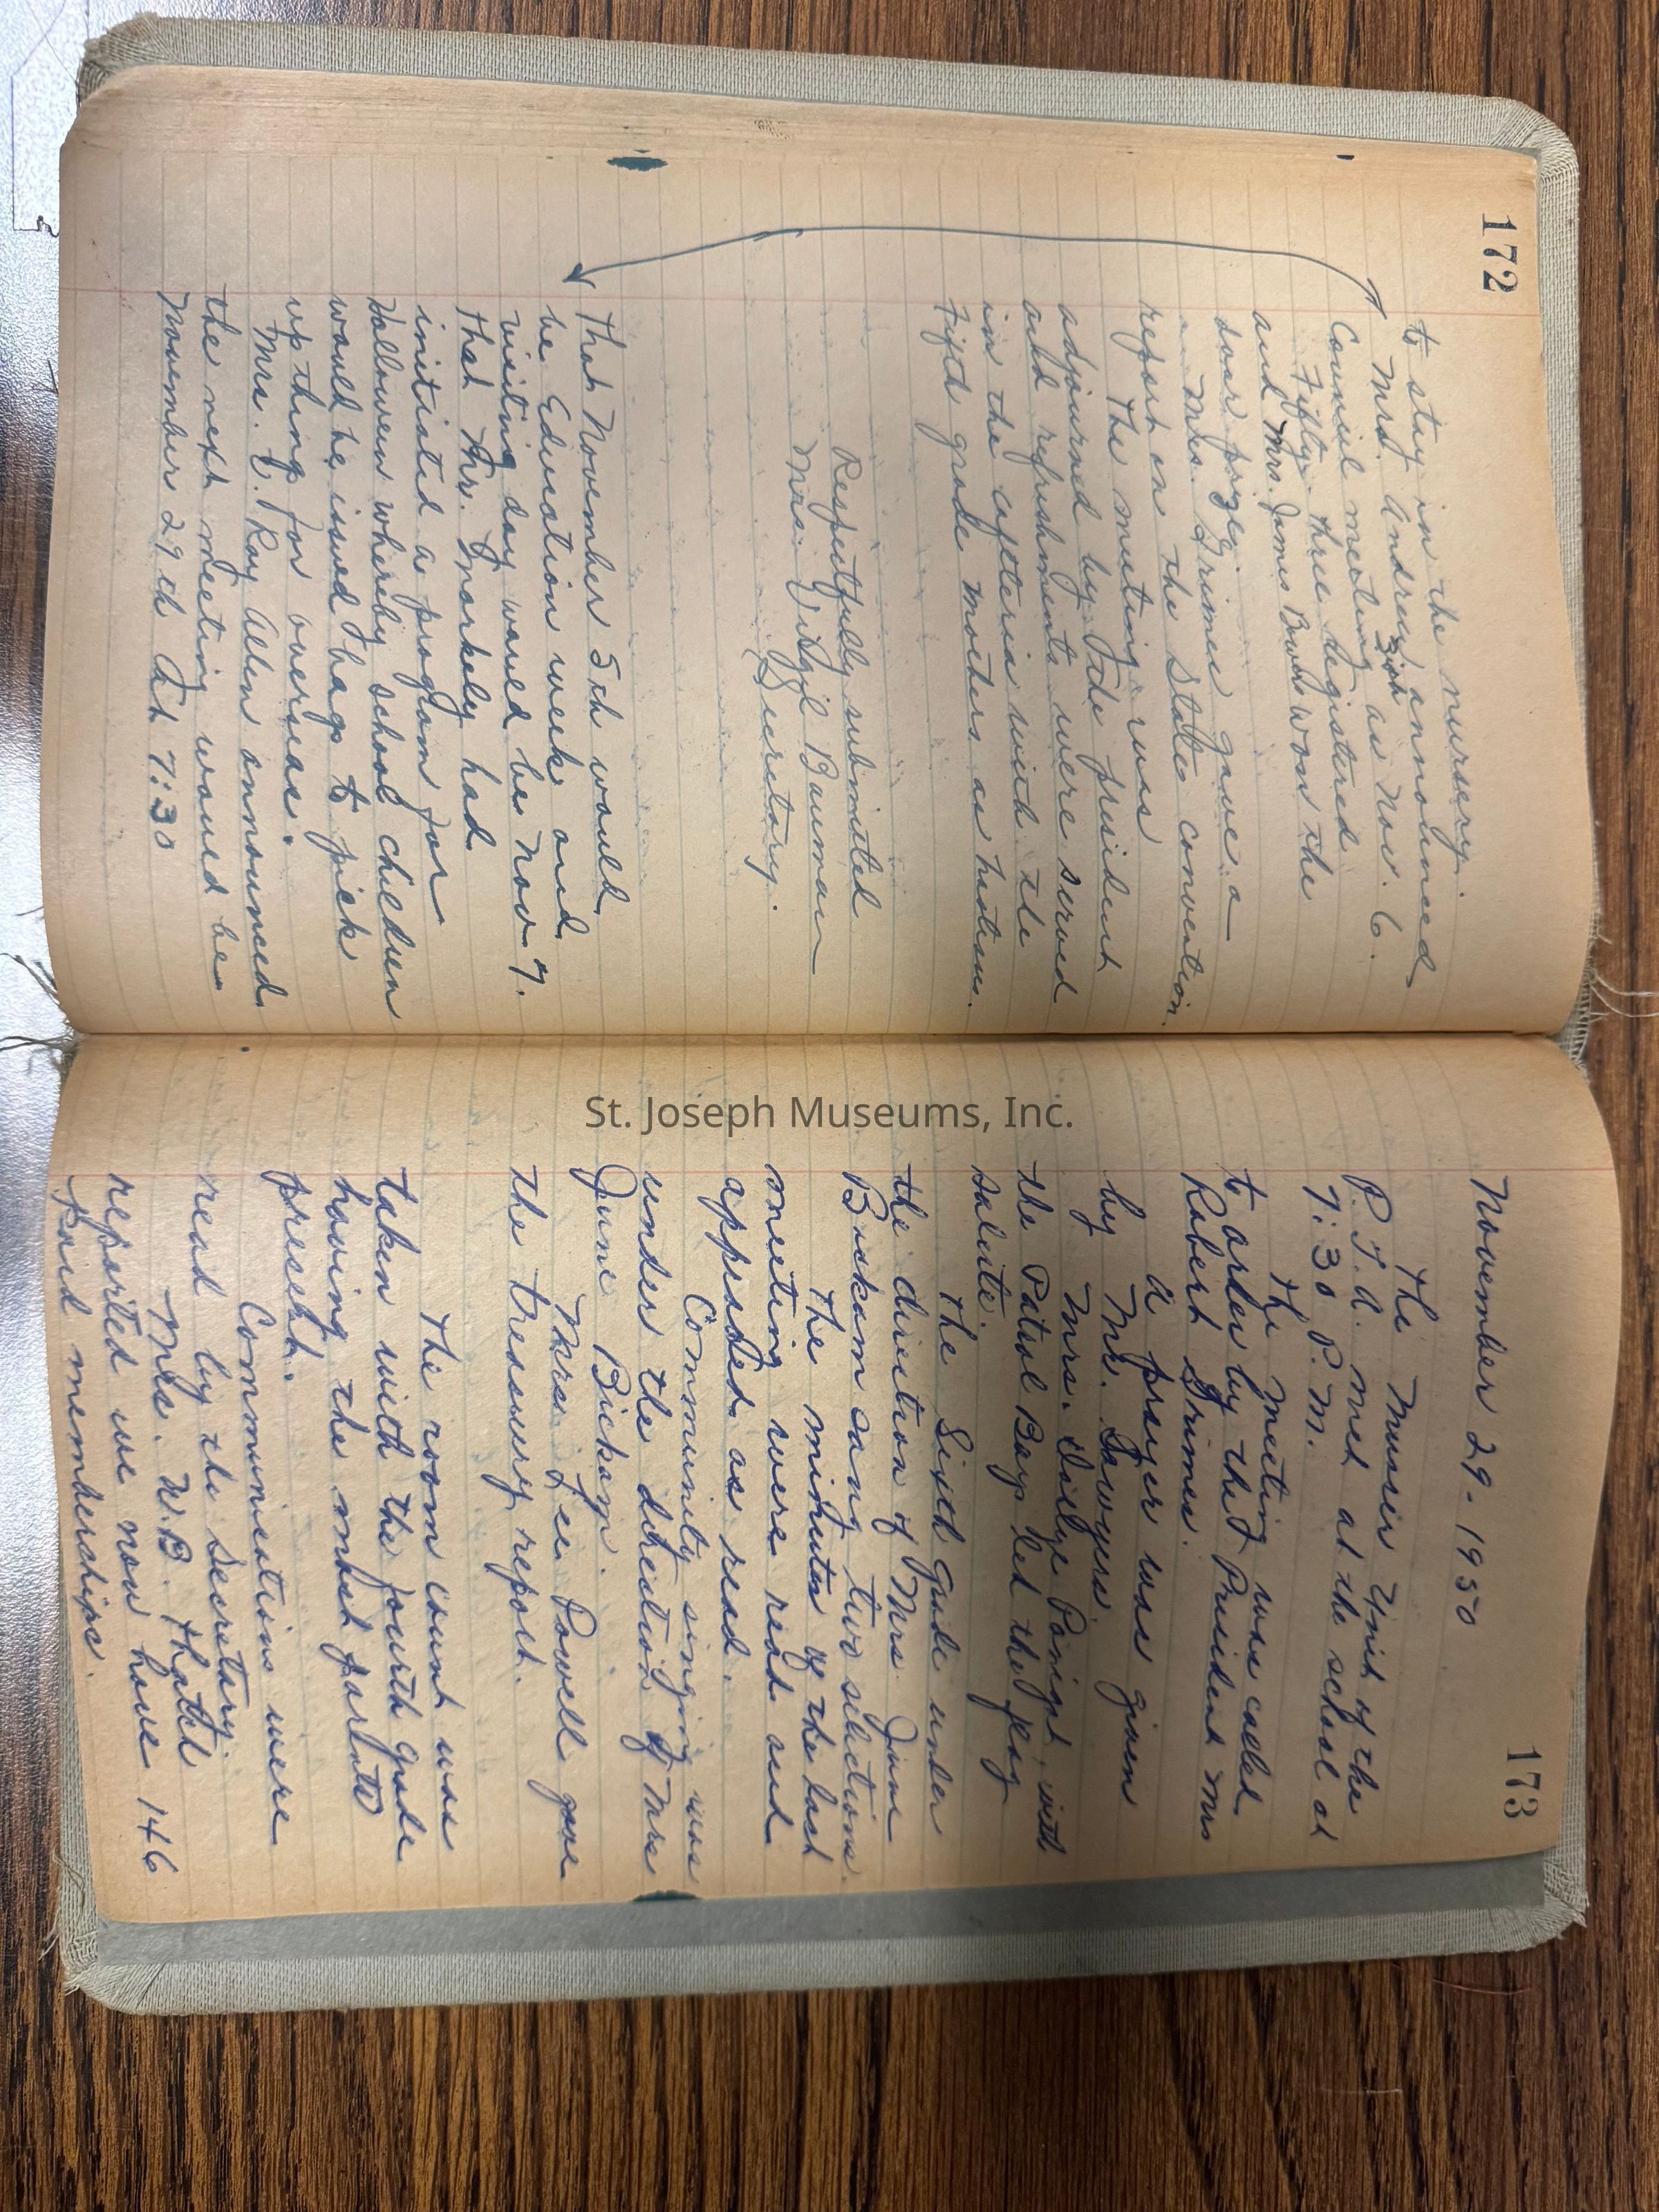 172
to stay in the nursery.
Mrs. Andrew Zish announced
Council meeting as Nov. 6.
Fifty-three registered
and Mrs. James Burks won the
door prize.
Mrs. Grimes gave a
report on the State convention.
The meeting was
adjourned by the president
and refreshments were served
in the cafeteria with the
Fifth grade mothers as hostess.
Respectfully submitted
Mrs. Virgil Bauman
Secretary.
That November 5th would
be Education week and
visiting day would be Nov 7.
that Mr. Markely had
initiated a program for
Halloween whereby school children
would be issued bags to pick
up things for overseas.
Mrs. C. Ray Allen announced
the next meeting would be
November 29th at 7:30
173
November 29-1950
The Musser Unit of the
P.T.A. met at the school at
7:30 P.M.
The meeting was called
to order by the President Mrs
Robert Grimes.
A prayer was given
by Mr. Sawyers.
Mrs. Dailye with
the Patrol Boys led the flag
salute.
The Sixth grade under
the direction of Mrs. June
Bickam sang two selections.
The minutes of the last
meeting were read and
approved as read.
Community singing was
under the direction of Mrs
June Bickam.
Mrs. Lee Powell gave
the treasury report.
The room count was
taken with the fourth grade
having the most parents
present.
Communications were
read by the Secretary.
Mrs. W.B. Thatch
reported we now have 146
paid memberships.
St. Joseph Museums, Inc.